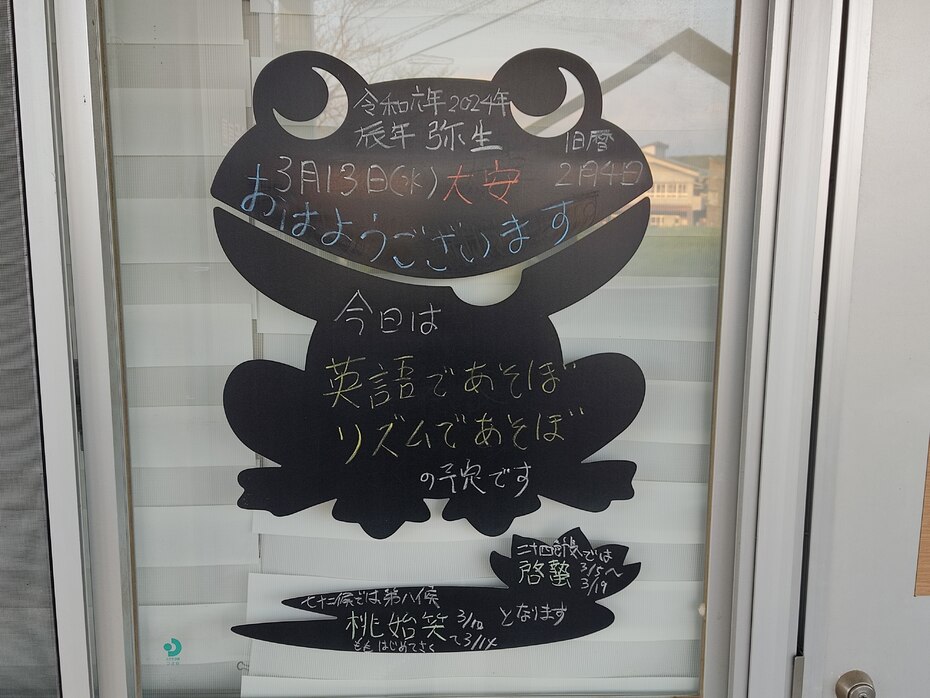 令和六年2024年
辰年 弥生
旧暦
3月13日(水)大安
2月4日
おはようございます
今日は
英語であそぼ
リズムであそぼ
の予定です
二十四節気では
啓蟄 3/5〜
3/19
七十二候では第八候
桃始笑 3/10
〜3/14
となります
ももはじめてさく